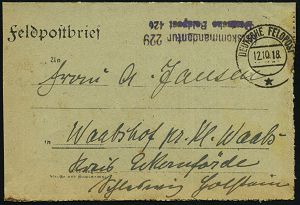 Feldpostbrief
kommandantur 229
Deutsche Feldpost 424
DEUTSCHE FELDPOST
12.10.18.
An
Frau A. Jansen
in Waabshof pr. Kl. Waabs
Kreis Eckernförde
Schleswig Holstein